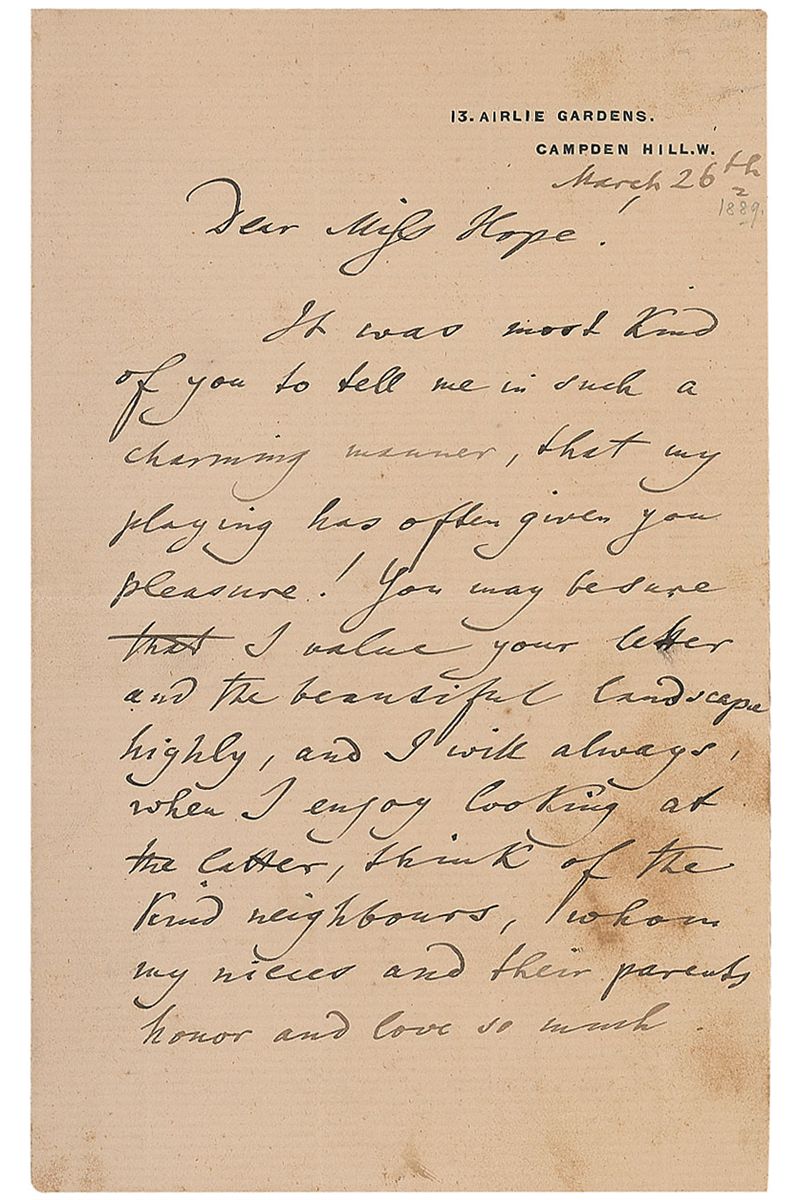 13. AIRLIE GARDENS.
CAMPDEN HILL.W.
March 26th
1889.
Dear Miss Hope!
It was most Kind
of you to tell me in such a
charming manner, that my
playing has often given you
pleasure! You may be sure
that I value your letter
and the beautiful landscape
highly, and I will always,
when I enjoy looking at
the latter, think of the
Kind neighbours, whom
my nieces and their parents
honor and love so much.